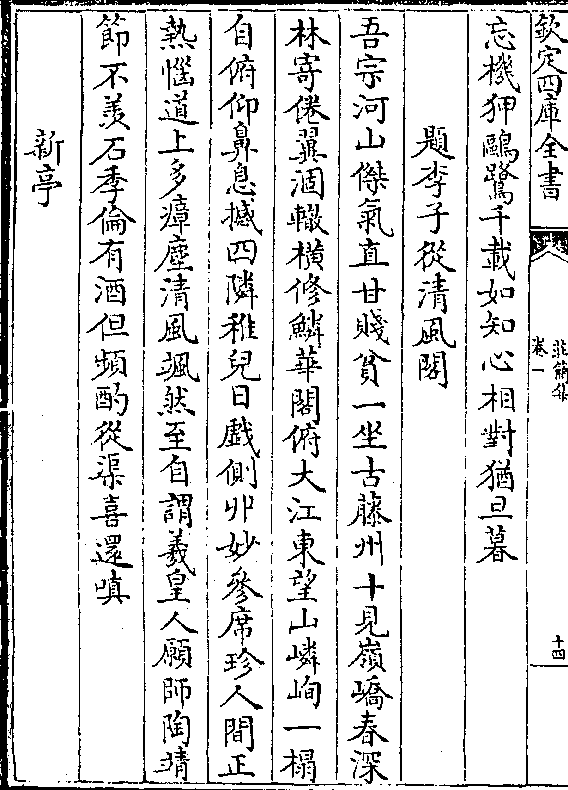 欽定四庫全書
莊簡集
卷一
十四
忘機狎鷗鷺千載如知心相對猶旦暮
題李子從清風閣
吾宗河山傑氣直甘賤貧一坐古藤州十見嶺嶠春深
林寄倦翼涸轍横修鱗華閣俯大江東望山嶙峋一榻
自俯仰鼻息撼四隣稚兒日戲側丱妙參席珍人間正
熱惱道上多瘴塵清風颯然至自謂羲皇人願師陶靖
節不羨石季倫有酒但頻酌從渠喜還嗔
新亭